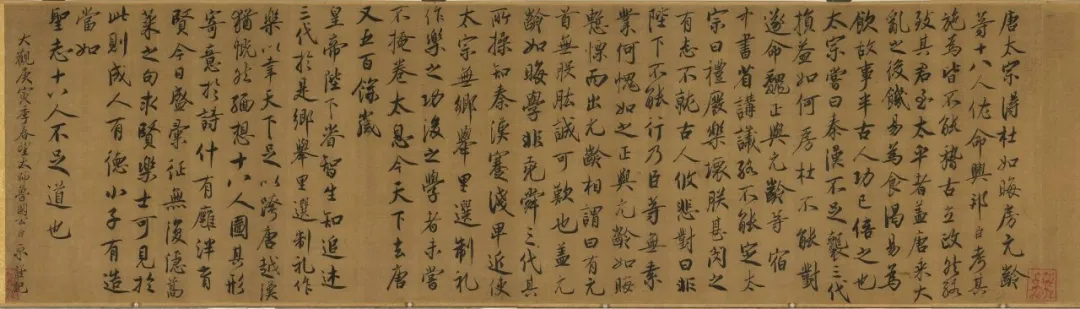 唐太宗得杜如晦房元齡
等十八人佐命興邦臣考其
施為皆不能稽古立政然能
致其君至太平者蓋唐承大
亂之後饑易為食渴易為
飲故事半古人功已倍之也
太宗嘗曰秦漢不足襲三代
損益如何房杜不能對
遂命魏正與元齡等宿
中書省講議終不能定太
宗曰禮廢樂壞朕甚閔之
有志不就古人攸悲對曰非
陛下不能行乃臣等無素
業何愧如之正與元齡如晦
慙慄而出元齡相謂曰有元
首無股肱誠可歎也蓋元
齡如晦學非堯舜三代其
所操知秦漢蹇淺卑近使
太宗無鄉舉里選制礼
作樂之功後之學者未嘗
不掩卷太息今天下去唐
又五百餘歲
皇帝陛下睿智生知追述
三代於是鄉舉里選制礼作
樂以幸天下足以跨唐越漢
猶慨然緬想十八人圖其形
寄意於詩什有廱泮育
賢今日盛彙征無復隱蒿
萊之句求賢樂士可見於
此則成人有德小子有造
當如
聖志十八人不足道也
大觀庚寅季春望太師魯國公臣京謹記